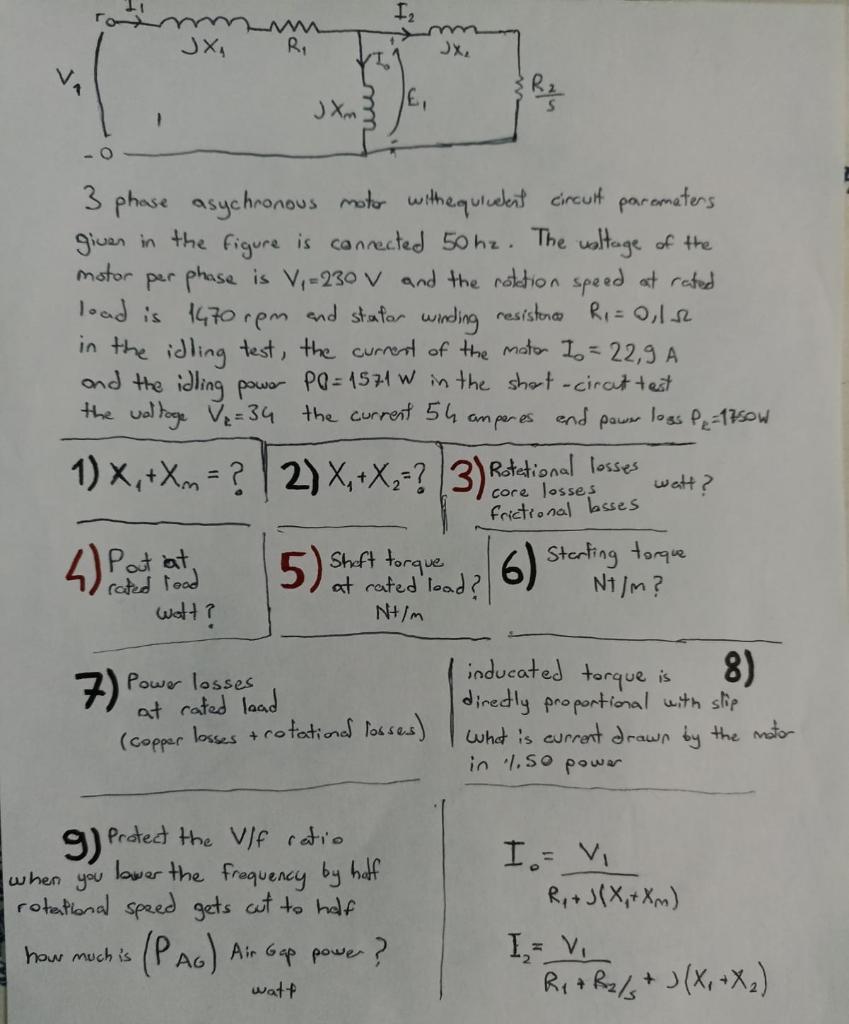 I1
I2
JX1
R1
I0
JX2
V1
JXm
E1
R2/s
3 phase asychronous motor withequivelent circuit parameters
given in the figure is connected 50hz. The voltage of the
motor per phase is V1=230 V and the rotation speed at rated
load is 1470 rpm and stator winding resistance R1 = 0,1 Ω
in the idling test, the current of the motor I0 = 22,9 A
and the idling power P0=1571 W in the short-circuit test
the voltage Vk=34 the current 54 amperes and power loss Pk=1750W
1) X1+Xm = ?
2) X1+X2=?
3) Rotational losses
core losses
frictional losses
watt?
4) Pout at
rated load
watt?
5) Shaft torque
at rated load?
Nt/m
6) Starting torque
Nt/m?
7) Power losses
at rated load
(copper losses + rotational losses)
8)
inducated torque is
directly proportional with slip
what is current drawn by the motor
in %50 power
9) Protect the V/f ratio
when you lower the frequency by half
rotational speed gets cut to half
how much is (PAG) Air Gap power?
watt
I0 = V1
R1+J(X1+Xm)
I2 = V1
R1 + R2/s + J(X1+X2)